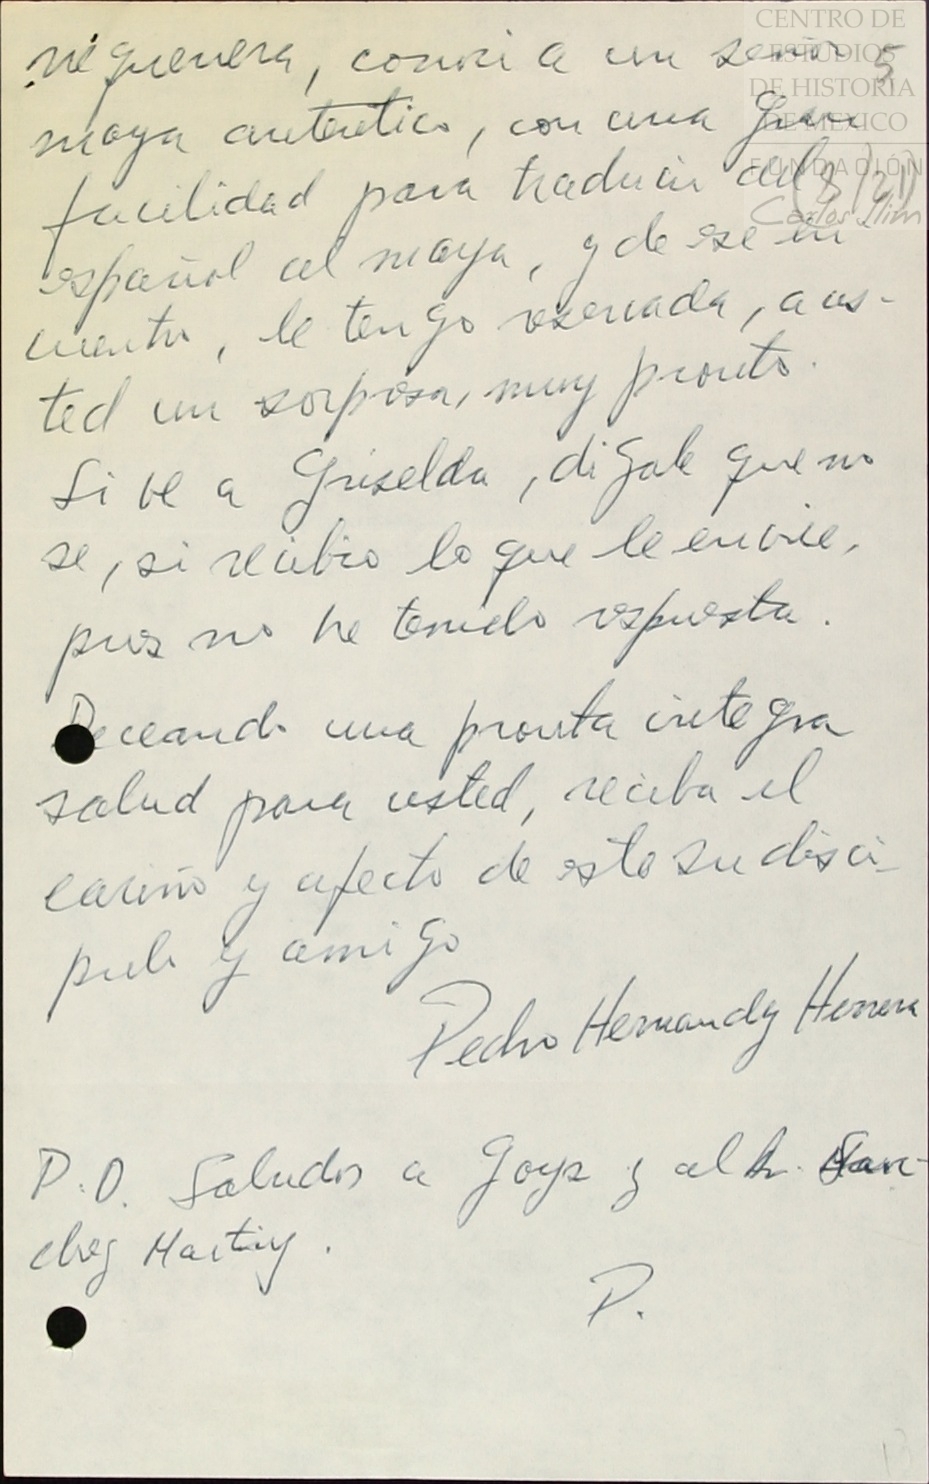 CENTRO DE
ESTUDIOS
DE HISTORIA
DE MÉXICO
FUNDACIÓN
Carlos Slim
5
nequenera, conoci a un señor
maya autentico, con una gran
facilidad para traducir del
español al maya, y de ese en
cuentro, le tengo reservada, a us-
ted un sorpresa, muy pronto.
Si ve a Griselda, digale que no
se, si recibio lo que le envie,
pues no he tenido respuesta.
Deceando una pronta integra
salud para usted, reciba el
cariño y afecto de este su disci-
pulo y amigo
Pedro Hernandez Herrera
P.D. Saludos a Goyo y al Sr. San-
chez Martinez.
P.
13